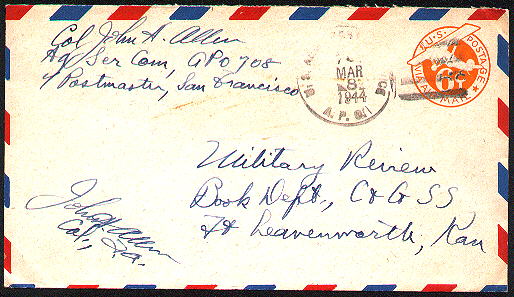 Col John A. Allen
Hq Ser Com, APO 708
Postmaster, San Francisco
MAR
8
1944
A.P.O.
U.S. POSTAGE
VIA AIR MAIL
6¢
Military Review
Book Dept., C&GSS
Ft Leavenworth, Kan
John A Allen
Col.,